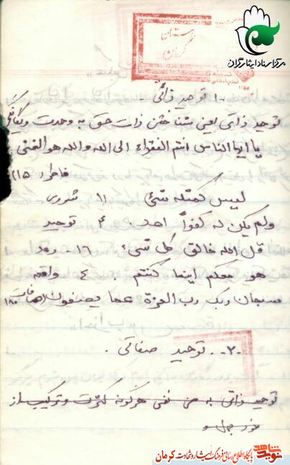 مرکز اسناد ایثارگران
۱- توحید ذاتی
توحید ذاتی یعنی شناختن ذات حق به وحدت و یگانگی
یا ایها الناس انتم الفقراء الی الله والله هو الغنی
فاطر ۱۵
لیس کمثله شیء ۱۱ شوری
ولم یکن له کفواً احد ۴ توحید
قل الله خالق کل شیء ۱۶ رعد
هو معکم اینما کنتم ۴ واقعه
سبحان ربک رب العزة عما یصفون صافات ۱۸۰
۲- توحید صفاتی.
توحید ذاتی به معنی نفی هرگونه کثرت و ترکیب از
خود
پایگاه اطلاع رسانی فرهنگ ایثار و شهادت کرمان